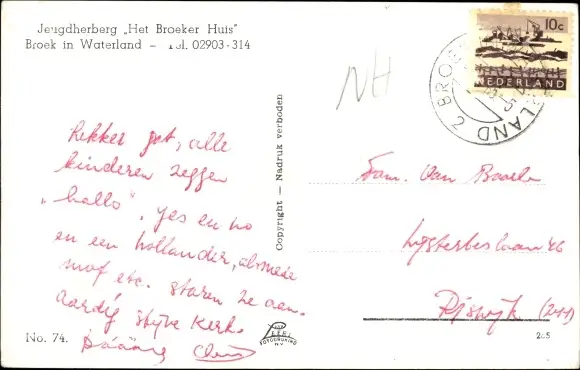 Jeugdherberg „Het Broeker Huis"
Broek in Waterland – Tel. 02903-314
10c
NEDERLAND
NH
Lekker pet, alle
kinderen zeggen
„hallo", yes en no
en een hollander, alsmede
mof etc. staren ze aan.
Aardig stijve kerk.
Copyright – Nadruk verboden
Fam. Van Baarle
Lijsterbeslaan 46
Rijswijk (ZH)
No. 74.
FOTODRUKKING
N.V.
265